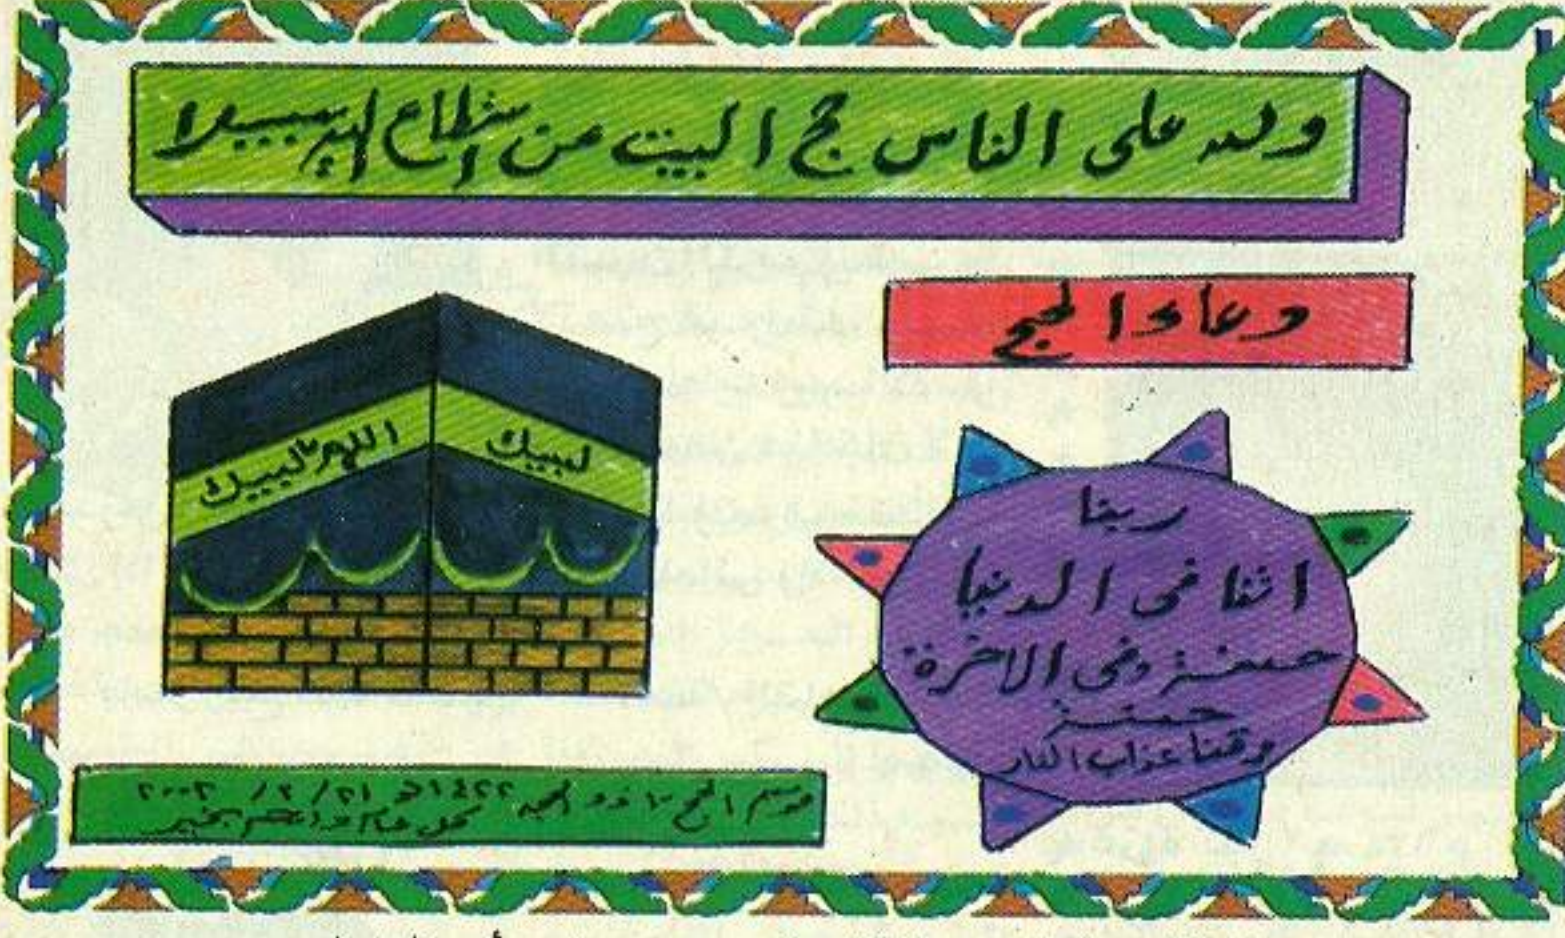 ولله على الناس حج البيت من استطاع إليه سبيلا
دعاء الحج
لبيك اللهم لبيك
ربنا
اتنا فى الدنيا
حسنة وفى الاخرة
حسنة
وقنا عذاب النار
موسم الحج ذو الحجه ١٤٢٢هـ ٢١/٢/٢٠٠٢
كل عام وانتم بخير